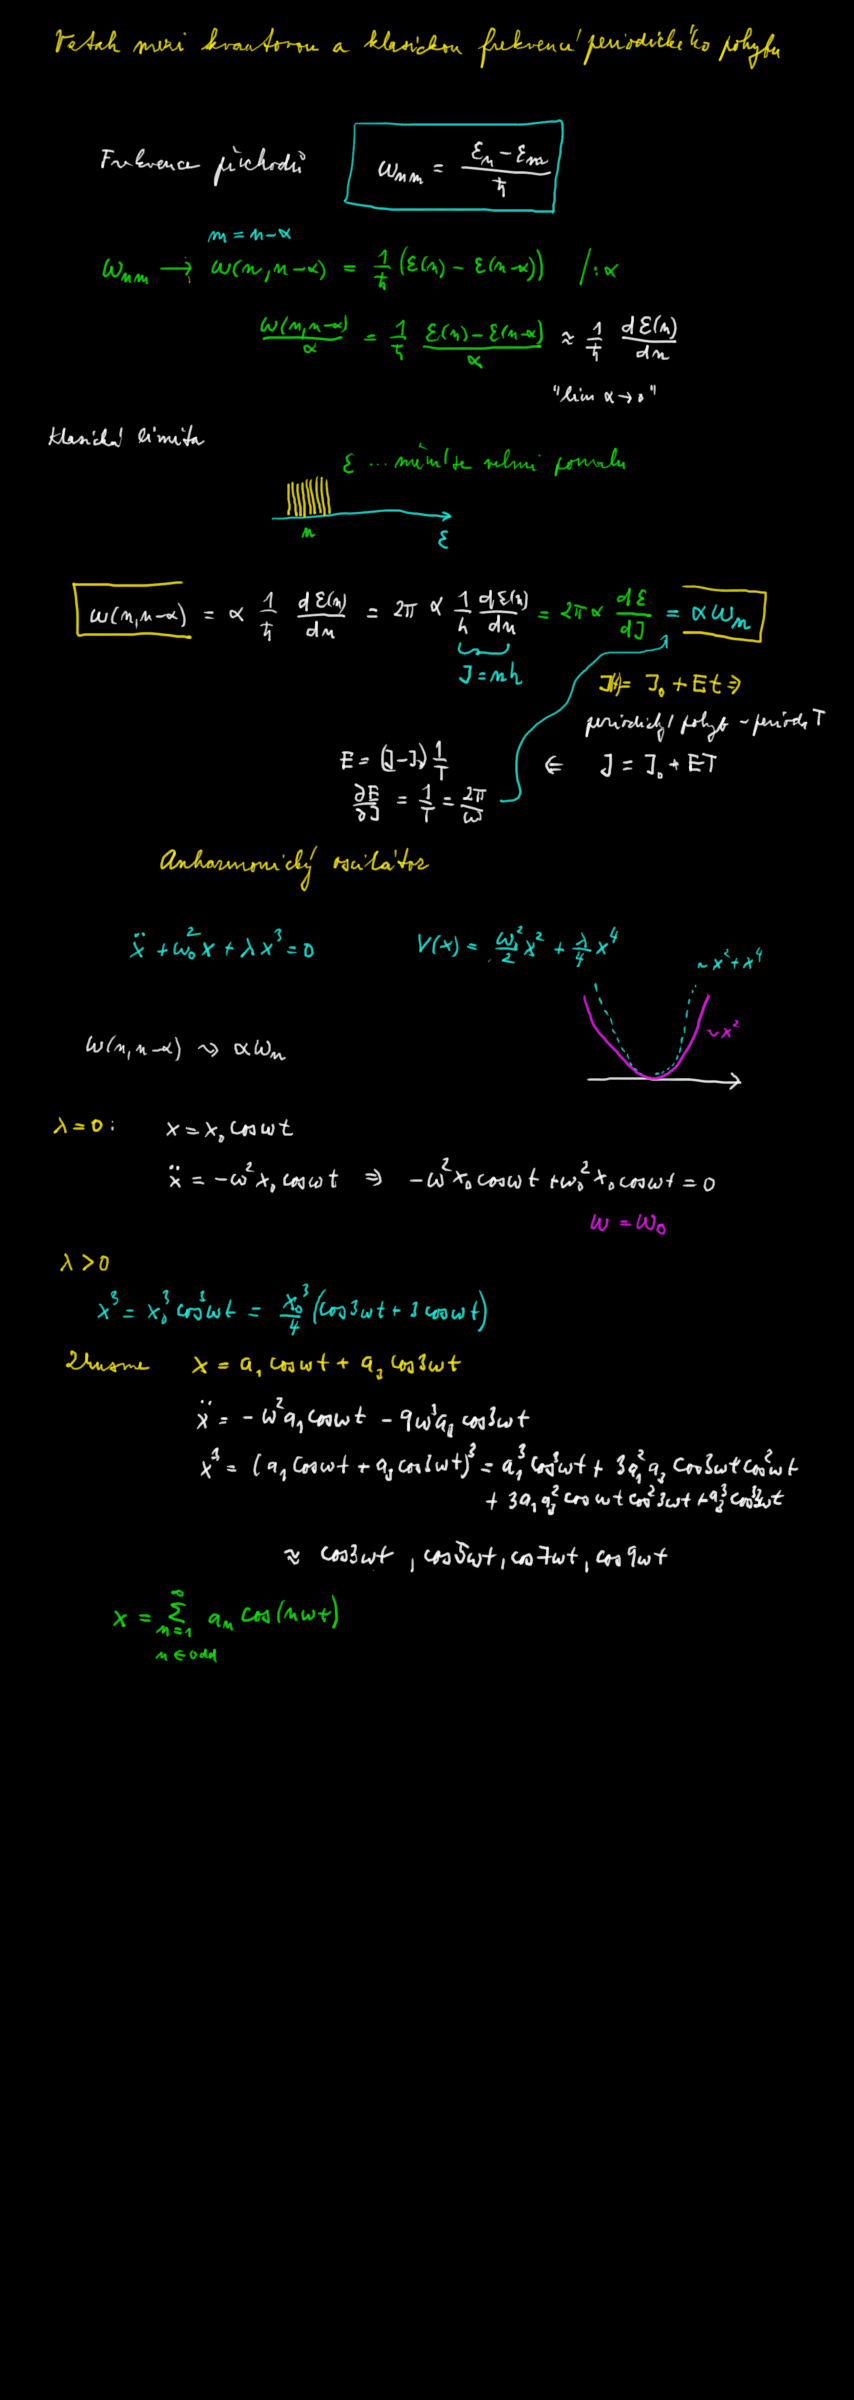 Vztah mezi kvantovou a klasickou frekvencí periodického pohybu
Frekvence přechodů ω_nm = (ε_n − ε_m)/ħ
m = n−α
ω_nm → ω(n, n−α) = 1/ħ (ε(n) − ε(n−α)) /:α
ω(n, n−α)/α = 1/ħ (ε(n) − ε(n−α))/α ≈ 1/ħ dε(n)/dn
"lim α→0"
klasická limita
ε ... mění se velmi pomalu
n
ε
ω(n, n−α) = α 1/ħ dε(n)/dn = 2π α 1/h dε(n)/dn = 2π α dε/dJ = α ω_n
J = nh
J(t) = J₀ + Et ⇒
periodický pohyb – perioda T
E = (J−J₀) 1/T ⇐ J = J₀ + ET
∂E/∂J = 1/T = 2π/ω
Anharmonický oscilátor
ẍ + ω₀² x + λ x³ = 0 V(x) = ω₀²/2 x² + λ/4 x⁴
~ x² + x⁴
~ x²
ω(n, n−α) ⇝ α ω_n
λ = 0: x = x₀ cos ωt
ẍ = −ω² x₀ cos ωt ⇒ −ω² x₀ cos ωt + ω₀² x₀ cos ωt = 0
ω = ω₀
λ > 0
x³ = x₀³ cos³ ωt = x₀³/4 (cos 3ωt + 3 cos ωt)
Zkusme x = a₁ cos ωt + a₃ cos 3ωt
ẍ = −ω² a₁ cos ωt − 9ω³ a₃ cos 3ωt
x³ = (a₁ cos ωt + a₃ cos 3ωt)³ = a₁³ cos³ ωt + 3a₁² a₃ cos 3ωt cos² ωt
+ 3a₁ a₃² cos ωt cos² 3ωt + a₃³ cos³ 3ωt
≈ cos 3ωt, cos 5ωt, cos 7ωt, cos 9ωt
x = Σ_{n=1}^{∞} a_n cos(nωt)
n ∈ odd